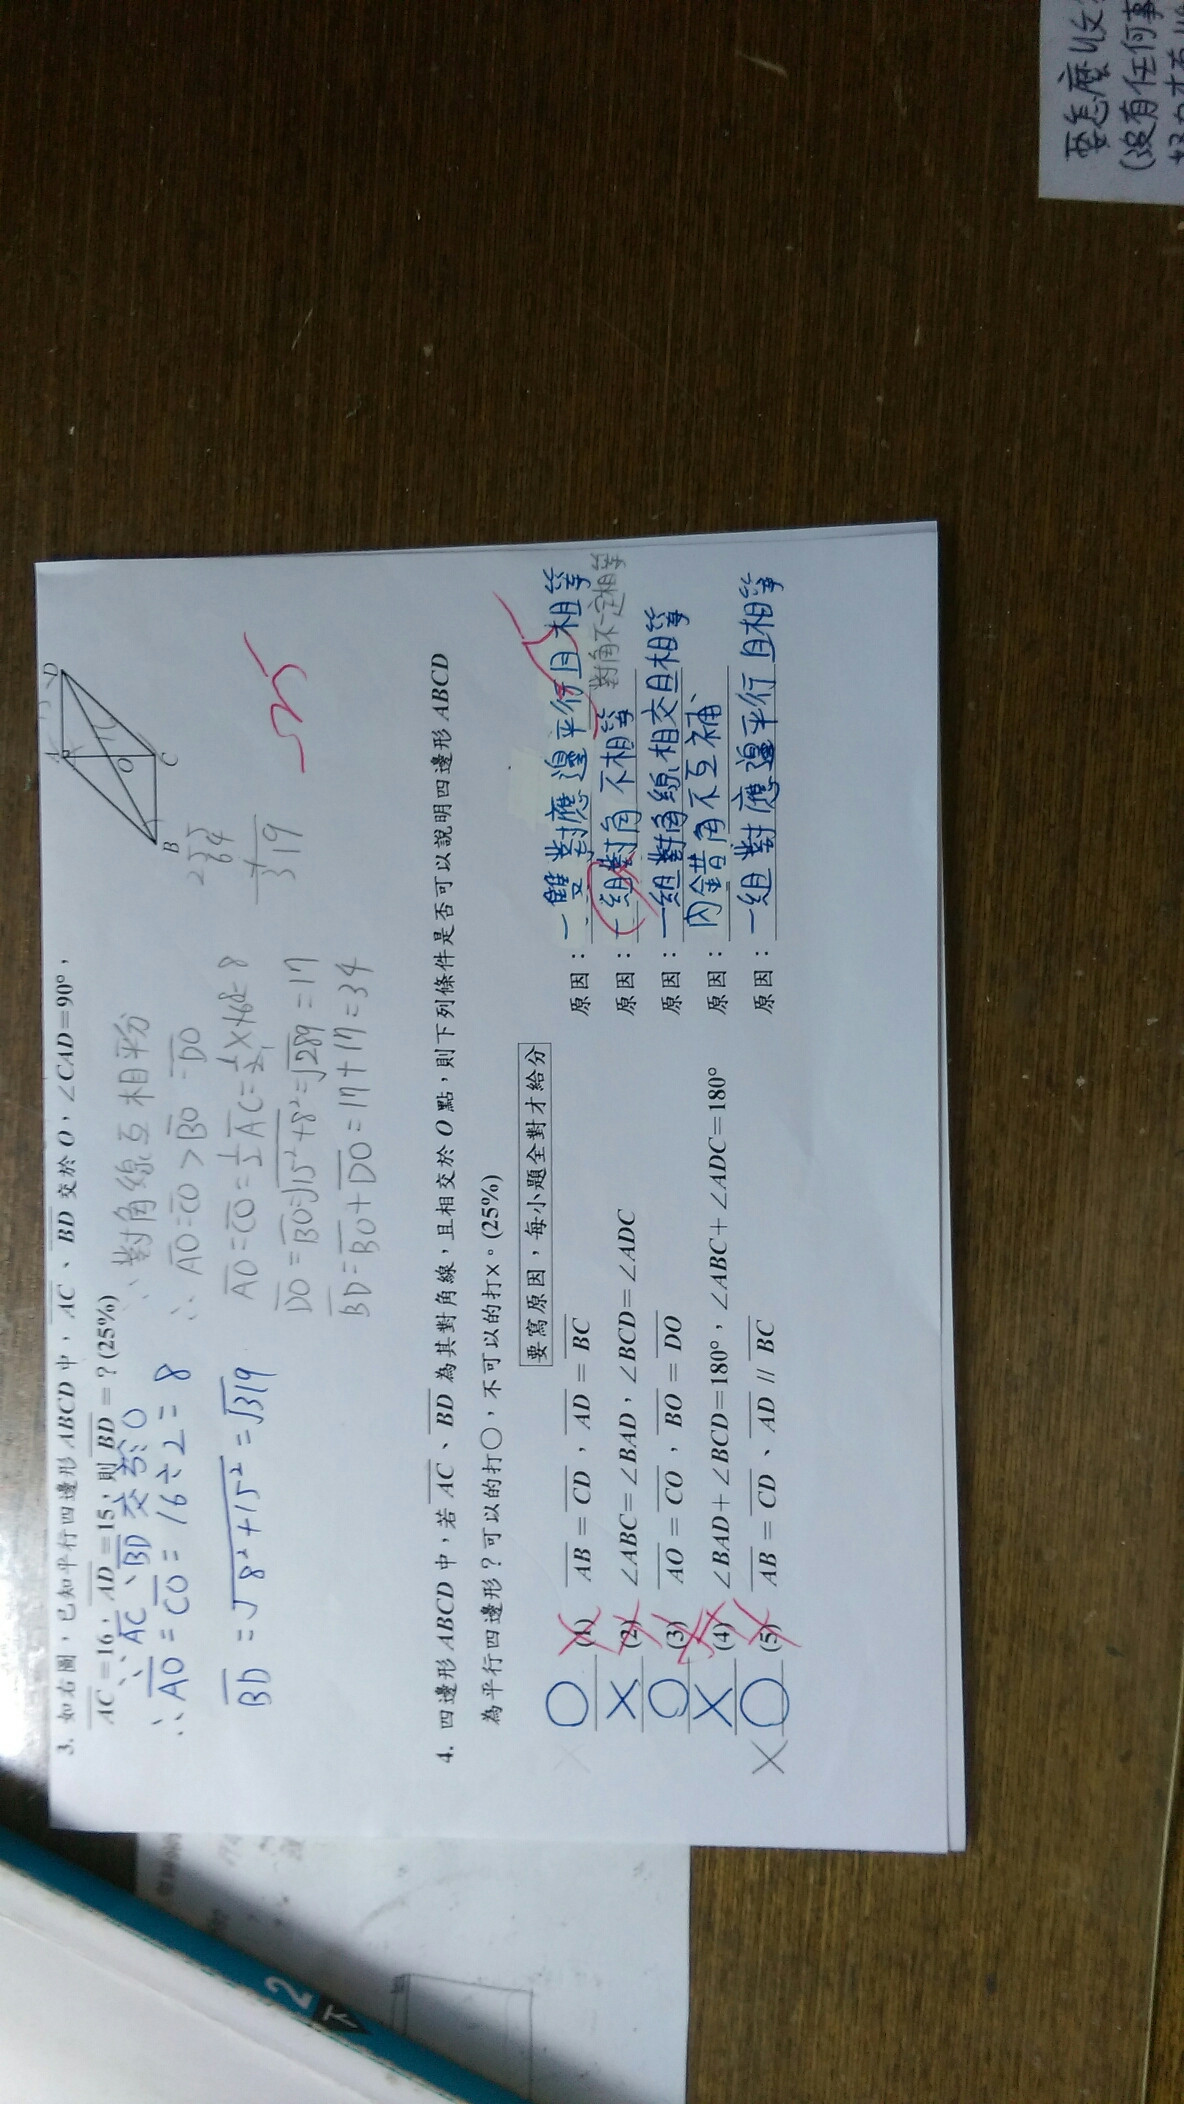 3. 如右圖，已知平行四邊形ABCD中，AC、BD交於O，∠CAD=90°，
AC=16，AD=15，則BD=？(25%)
∵AC、BD交於O
∴AO=CO=16÷2=8
BD=√8²+15²=√319
∵對角線互相平分
∴AO=CO>BO=DO
AO=CO=½AC=½×16=8
DO=BO=√15²+8²=√289=17
BD=BO+DO=17+17=34
A
D
O
B
C
225
64
319
-25
4. 四邊形ABCD中，若AC、BD為其對角線，且相交於O點，則下列條件是否可以說明四邊形ABCD
為平行四邊形？可以的打○，不可以的打×。(25%)
要寫原因，每小題全對才給分
○ (1) AB=CD，AD=BC 原因：一雙對應邊平行且相等
× (2) ∠ABC=∠BAD，∠BCD=∠ADC 原因：一組對角不相等 對角不一定相等
○ (3) AO=CO，BO=DO 原因：一組對角線相交且相等
× (4) ∠BAD+∠BCD=180°，∠ABC+∠ADC=180° 原因：內錯角不互補
×○ (5) AB=CD、AD//BC 原因：一組對應邊平行且相等
要怎麼收
(沒有任何事
2